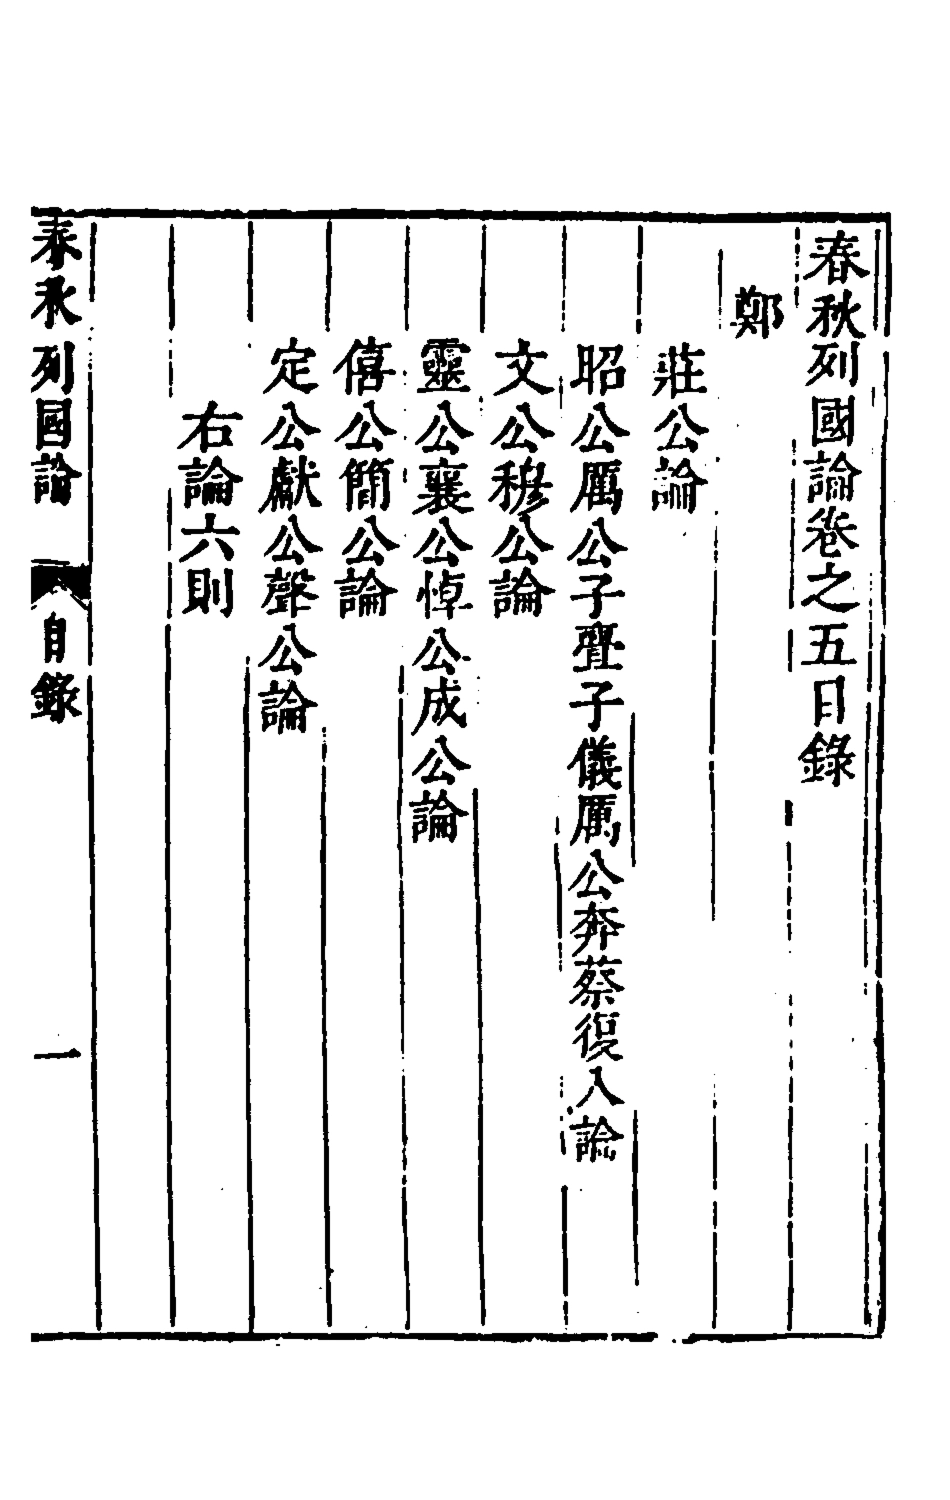 春秋列國論卷之五目錄
鄭
莊公論
昭公厲公子亹子儀厲公奔蔡復入論
文公穆公論
靈公襄公悼公成公論
僖公簡公論
定公獻公聲公論
右論六則
春秋列國論
目錄
一